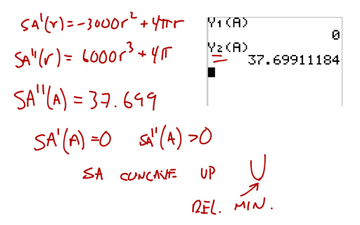 SA'(r) = -3000r² + 4πr
SA''(r) = 6000r³ + 4π
SA''(A) = 37.699
SA'(A) = 0 SA''(A) > 0
SA CONCAVE UP
REL. MIN.
Y₁(A)
0
Y₂(A)
37.69911184